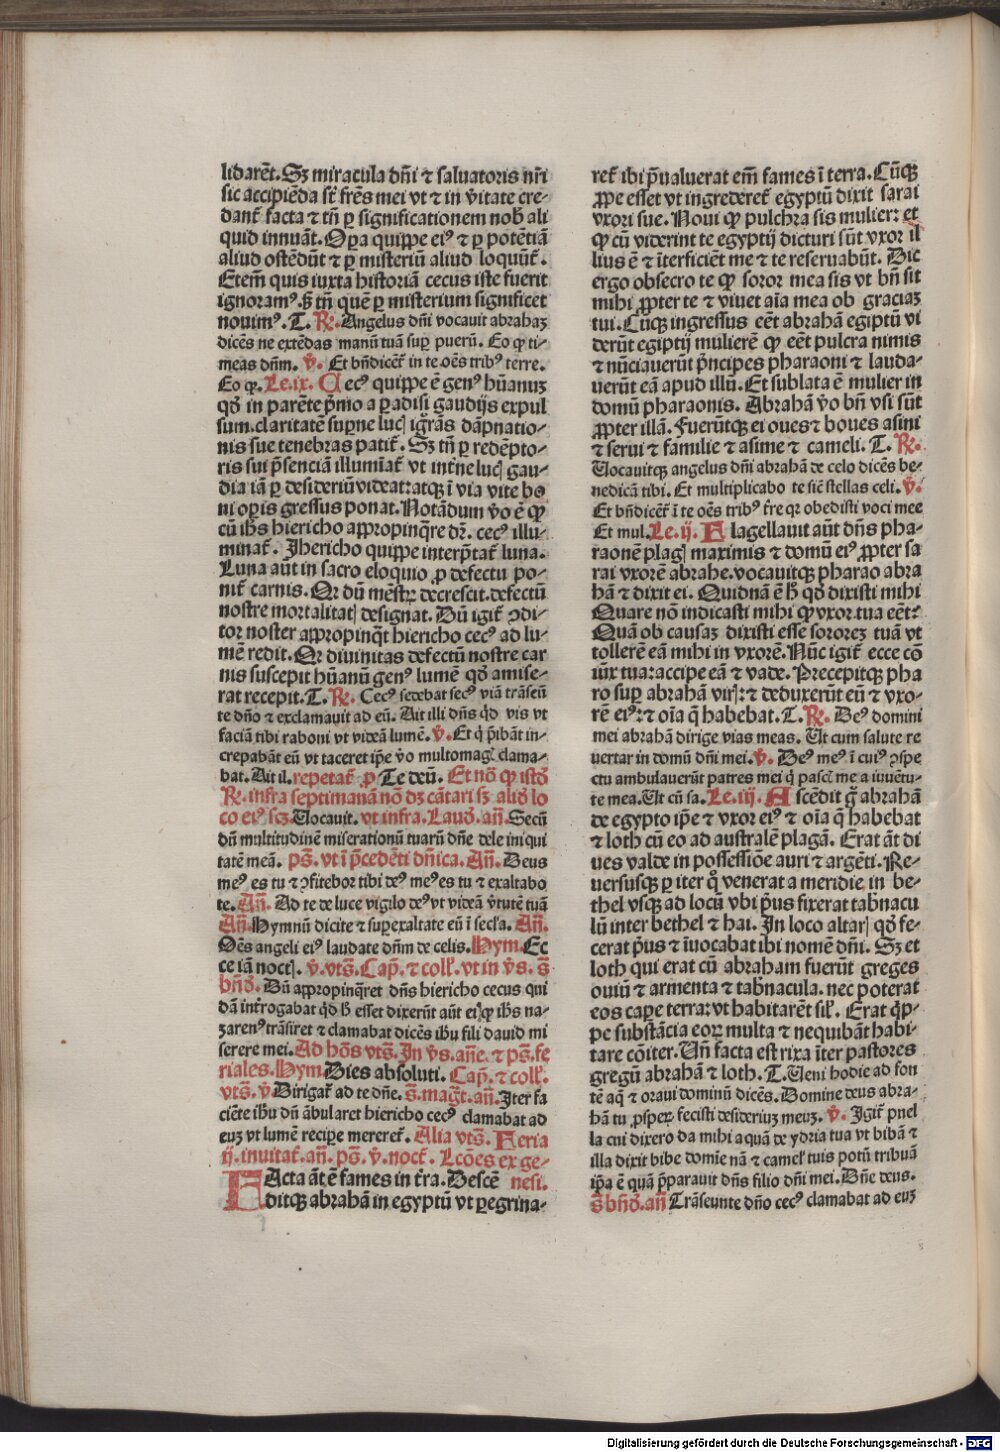 lidarēt. Sꝫ miracula dn̄i ⁊ saluatoris nr̄i
sic accipiēda sт̄ fr̄es mei vt ⁊ in v̄itate cre-
dant̄ facta ⁊ tn̄ ꝑ significationem nob̄ ali
quid innuāt. Oꝑa quippe eiꝰ ⁊ ꝑ potētiā
aliud ostēdūt ⁊ ꝑ misteriū aliud loquūt̄.
Etem̄ quis iuxta historiā cecus iste fuerit
ignoramꝰ. s̄ tn̄ quē ꝑ misterium significet
nouimꝰ. T. R̄. Angelus dn̄i vocauit abrahaꝫ
dicēs ne extēdas manū tuā suꝑ puerū. Eo ꝙ ti-
meas dn̄m. v̄. Et bn̄dicēt̄ in te oēs tribꝰ terre.
Eo ꝙ. Le. ix. Cecꝰ quippe ē genꝰ hūanuꝫ
qđ in parēte p̄mo a ꝑadisi gaudijs expul
sum. claritatē suꝑne lucꝭ igr̄ās dāpnatio-
nis sue tenebras patit̄. Sꝫ tn̄ ꝑ redēpto-
ris sui p̄senciā illumīat̄ vt int̄ne lucꝭ gau-
dia iā ꝑ desideriū videat: atqꝫ ī via vite bo
ni oꝑis gressus ponat. Notādum v̄o ē ꝙ
cū ih̄s hiericho appropinq̄re dr̄. cecꝰ illu-
minat̄. Jhericho quippe interp̄tat̄ luna.
Luna aūt in sacro eloquio ꝓ defectu po-
nit̄ carnis. Qr dū mēstr̄ decrescit. defectū
nostre mortalitatꝭ designat. Dū igit̄ ꝯdi-
tor noster appropinq̄t hiericho cecꝰ ad lu-
mē redit. Qr diuinitas defectū nostre car
nis suscepit hūanū genꝰ lumē qđ amise-
rat recepit. T. R̄. Cecꝰ sedebat secꝰ viā trāseū
te dn̄o ⁊ exclamauit ad eū. Ait illi dn̄s qđ vis vt
faciā tibi raboni vt videā lumē. v̄. Et q̄ p̄ibāt in-
crepabāt eū vt taceret ip̄e v̄o multomagꝭ clama-
bat. Ait il. repetat̄ ꝓ Te deū. Et nō ꝙ istđ
R̄. infra septimanā nō dꝫ cātari sꝫ aliđ lo
co eiꝰ scꝫ. Vocauit. vt infra. Lauđ. an̄. Secū
dū multitudinē miserationū tuarū dn̄e dele iniqui
tatē meā. ps̄. vt ī p̄cedēti dn̄ica. An̄. Deus
meꝰ es tu ⁊ ꝯfitebor tibi deꝰ meꝰ es tu ⁊ exaltabo
te. An̄. Ad te de luce vigilo deꝰ vt videā v̄tutē tuā
An̄. Hymnū dicite ⁊ suꝑexaltate eū ī sec̄la. An̄.
Oēs angeli eiꝰ laudate dn̄m de celis. Hym. Ec
ce iā noctꝭ. v̄. vts̄. Cap̄. ⁊ coll̄. vt in v̄s. s̄
bn̄đ. Dū appropinq̄ret dn̄s hiericho cecus qui
dā int̄rogabat qđ h̄ esset dixerūt aūt ei ꝙ ih̄s na-
ꝫarenꝰ trāsiret ⁊ clamabat dicēs ih̄u fili dauid mi
serere mei. Ad hōs vts̄. In v̄s. an̄e. ⁊ ps̄. fe
riales. Hym. Dies absoluti. Cap̄. ⁊ coll̄.
vts̄. v̄. Dirigat̄ ad te dn̄e. s̄. maḡt. an̄. Iter fa
ciēte ih̄u dū ābularet hiericho cecꝰ clamabat ad
euꝫ vt lumē recipe mereret̄. Alia vts̄. Feria
ij. inuitat̄. an̄. ps̄. v̄. noct̄. Lc̄ōes ex ge-
Facta āt ē fames in t̄ra. Descē nesi.
ditqꝫ abrahā in egyptū vt ꝑegrina-
ret̄ ibi p̄ualuerat em̄ fames ī terra. Cūqꝫ
ꝓpe esset vt ingrederet̄ egyptū dixit sarai
vxori sue. Noui ꝙ pulchra sis mulier: et
ꝙ cū viderint te egyptij dicturi sūt vxor il
lius ē ⁊ īterficiēt me ⁊ te reseruabūt. Dic
ergo obsecro te ꝙ soror mea sis vt bn̄ sit
mihi ꝓpter te ⁊ viuet aīa mea ob graciaꝫ
tui. Cūqꝫ ingressus eēt abrahā egiptū vi
derūt egiptij mulierē ꝙ eēt pulcra nimis
⁊ nūciauerūt p̄ncipes pharaoni ⁊ lauda-
uerūt eā apud illū. Et sublata ē mulier in
domū pharaonis. Abrahā v̄o bn̄ vsi sūt
ꝓpter illā. Fuerūtqꝫ ei oues ⁊ boues asini
⁊ serui ⁊ familie ⁊ asime ⁊ cameli. T. R̄.
Vocauitqꝫ angelus dn̄i abrahā de celo dicēs be-
nedicā tibi. Et multiplicabo te sic̄ stellas celi. v̄.
Et bn̄dicēt̄ ī te oēs tribꝰ t̄re qr obedisti voci mee
Et mul. Le. ij. Flagellauit aūt dn̄s pha-
raonē plagꝭ maximis ⁊ domū eiꝰ ꝓpter sa
rai vxorē abrahe. vocauitqꝫ pharao abra
hā ⁊ dixit ei. Quidnā ē h̄ qđ dixisti mihi
Quare nō indicasti mihi ꝙ vxor tua eēt?
Quā ob causaꝫ dixisti esse sororeꝫ tuā vt
tollerē eā mihi in vxorē. Nūc igit̄ ecce cō
iūx tua: accipe eā ⁊ vade. Precepitqꝫ pha
ro suꝑ abrahā virꝭ: ⁊ deduxerūt eū ⁊ vxo-
rē eiꝰ: ⁊ oīa q̄ habebat. T. R̄. Deꝰ domini
mei abrahā dirige vias meas. Vt cum salute re
uertar in domū dn̄i mei. v̄. Deꝰ meꝰ ī cuiꝰ ꝯspe
ctu ambulauerūt patres mei q̄ pascꝭ me a iuuētu-
te mea. Vt cū sa. Le. iij. Ascēdit g̊ abrahā
de egypto ip̄e ⁊ vxor eiꝰ ⁊ oīa q̄ habebat
⁊ loth cū eo ad australē plagā. Erat āt di
ues valde in possessiōe auri ⁊ argēti. Re-
uersusqꝫ ꝑ iter q̊ venerat a meridie in be-
thel vsqꝫ ad locū vbi p̄us fixerat tabnacu
lū inter bethel ⁊ hai. In loco altarꝭ qđ fe-
cerat p̄us ⁊ īuocabat ibi nomē dn̄i. Sꝫ et
loth qui erat cū abraham fuerūt greges
ouiū ⁊ armenta ⁊ tab̄nacula. nec poterat
eos caꝑe terra: vt habitarēt sil̄. Erat q̄p-
pe substācia eoꝝ multa ⁊ nequibāt habi-
tare cōiter. Vn̄ facta est rixa īter pastores
gregū abrahā ⁊ loth. T. Veni hodie ad fon
tē aq̄ ⁊ oraui dominū dicēs. Domine deus abra-
hā tu ꝓsꝑe fecisti desideriuꝫ meuꝫ. v̄. Igit̄ puel
la cui dixero da mihi aquā de ydria tua vt bibā ⁊
illa dixit bibe domīe nā ⁊ camelꝭ tuis potū tribuā
ip̄a ē quā p̄parauit dn̄s filio dn̄i mei. Dn̄e deus.
s̄ bn̄đ. an̄ Trāseunte dn̄o cecꝰ clamabat ad euꝫ
Digitalisierung gefördert durch die Deutsche Forschungsgemeinschaft - DFG